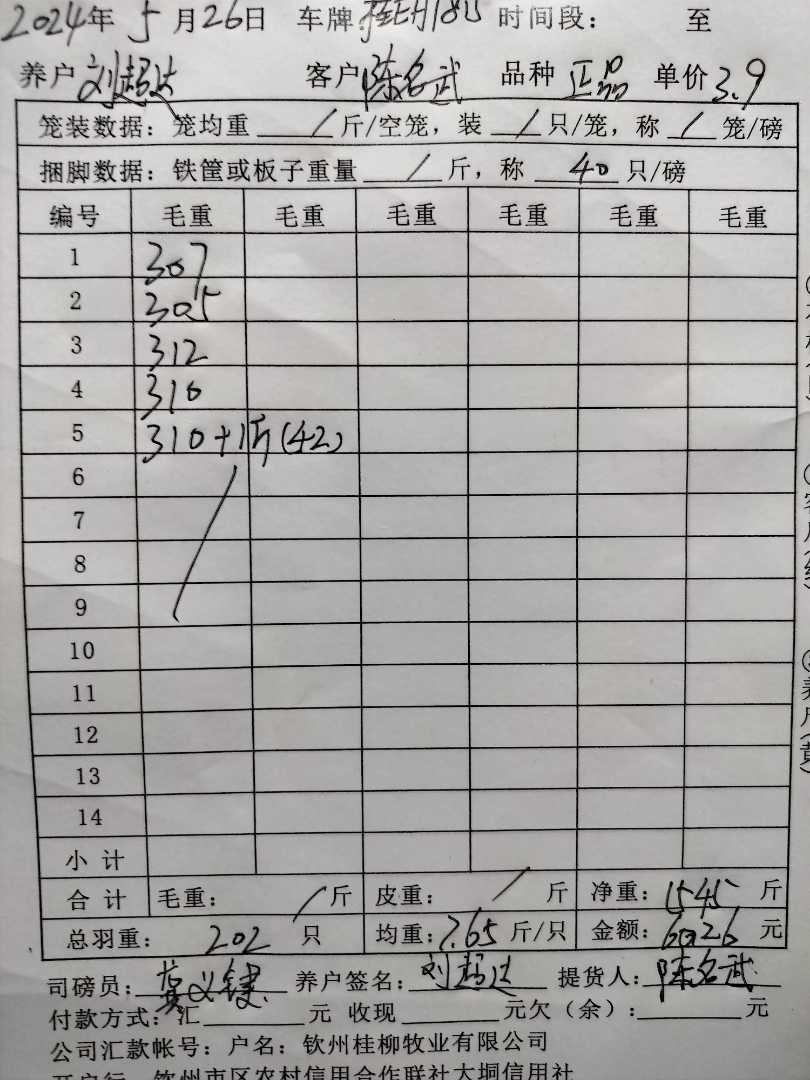 2024年 5月26日 车牌 时间段: 至
养户 刘超达 客户 陈名武 品种 正品 单价 3.9
笼装数据: 笼均重 / 斤/空笼, 装 / 只/笼, 称 / 笼/磅
捆脚数据: 铁筐或板子重量 / 斤, 称 40 只/磅
编号 毛重 毛重 毛重 毛重 毛重 毛重
1 307
2 305
3 312
4 310
5 310+1斤(42)
6
7
8
9
10
11
12
13
14
小计
合计 毛重: / 斤 皮重: / 斤 净重: 1545 斤
总羽重: 202 只 均重: 7.65 斤/只 金额: 6026 元
司磅员: 义键 养户签名: 刘超达 提货人: 陈名武
付款方式: 汇 元 收现 元欠(余): 元
公司汇款帐号: 户名: 钦州桂柳牧业有限公司
开户行 钦州市区农村信用合作联社大垌信用社